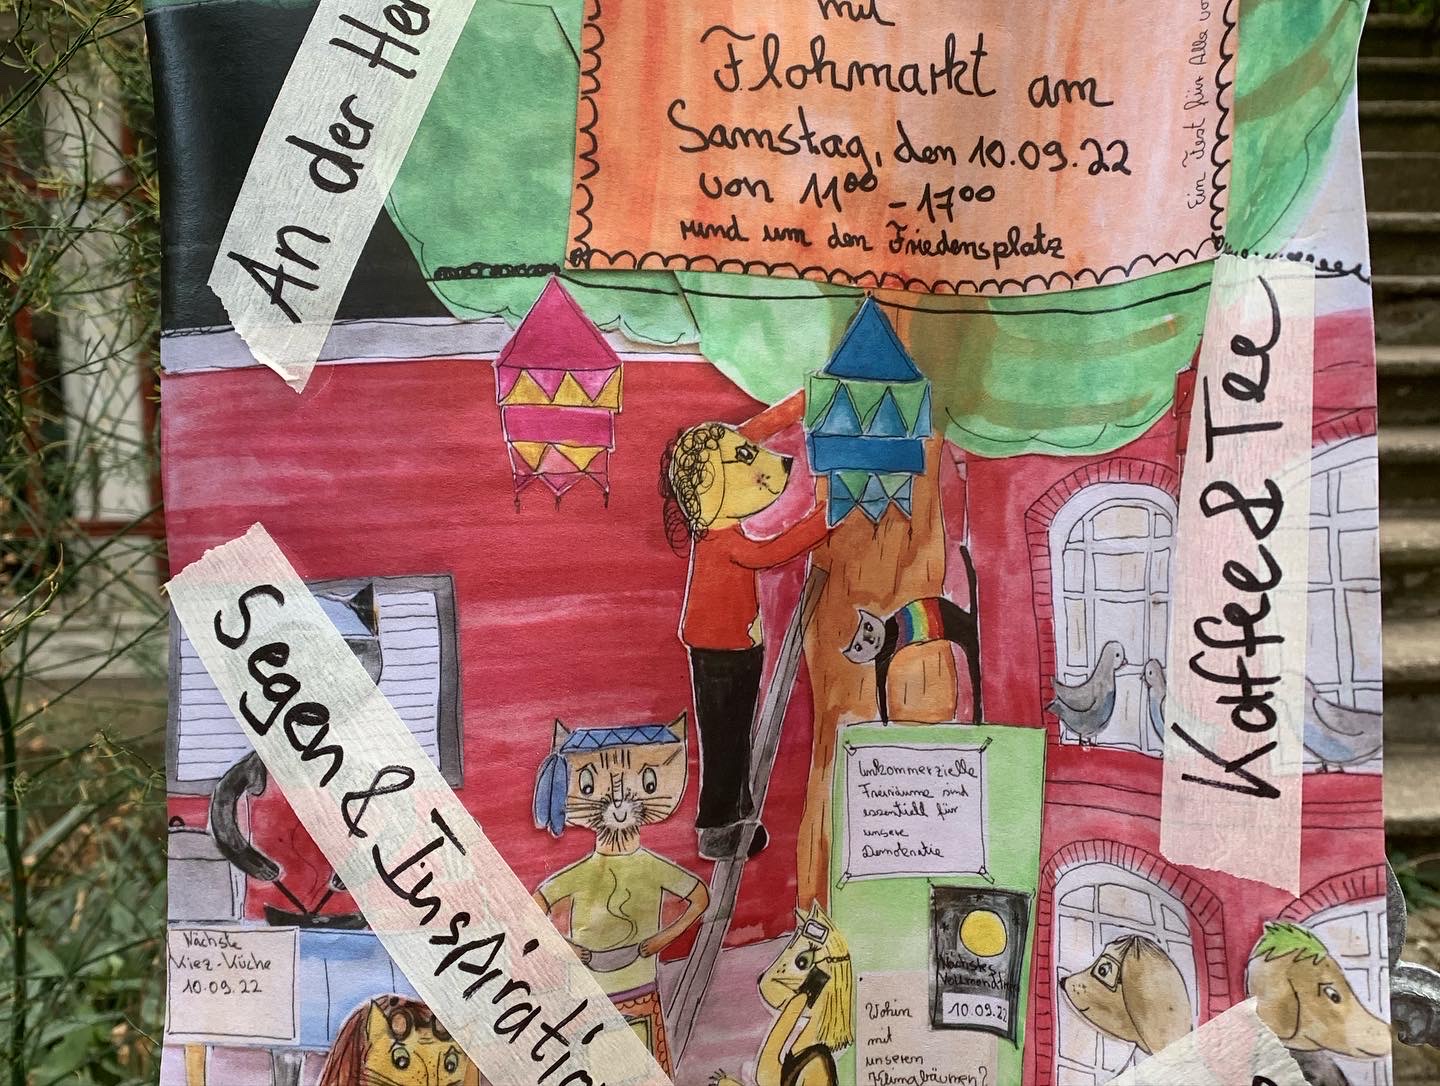 mit
Flohmarkt am
Samstag, den 10.09.22
von 11⁰⁰ - 17⁰⁰
rund um den Friedensplatz
Ein Fest für Alle
An der
Kaffee & Tee
Segen & Inspiration
Unkommerzielle
Freiräume sind
essentiell für
unsere
Demokratie
Nächste
Kiez-Küche
10.09.22
Nächstes
10.09.22
Wohin
mit
unseren
Klimabäumen?